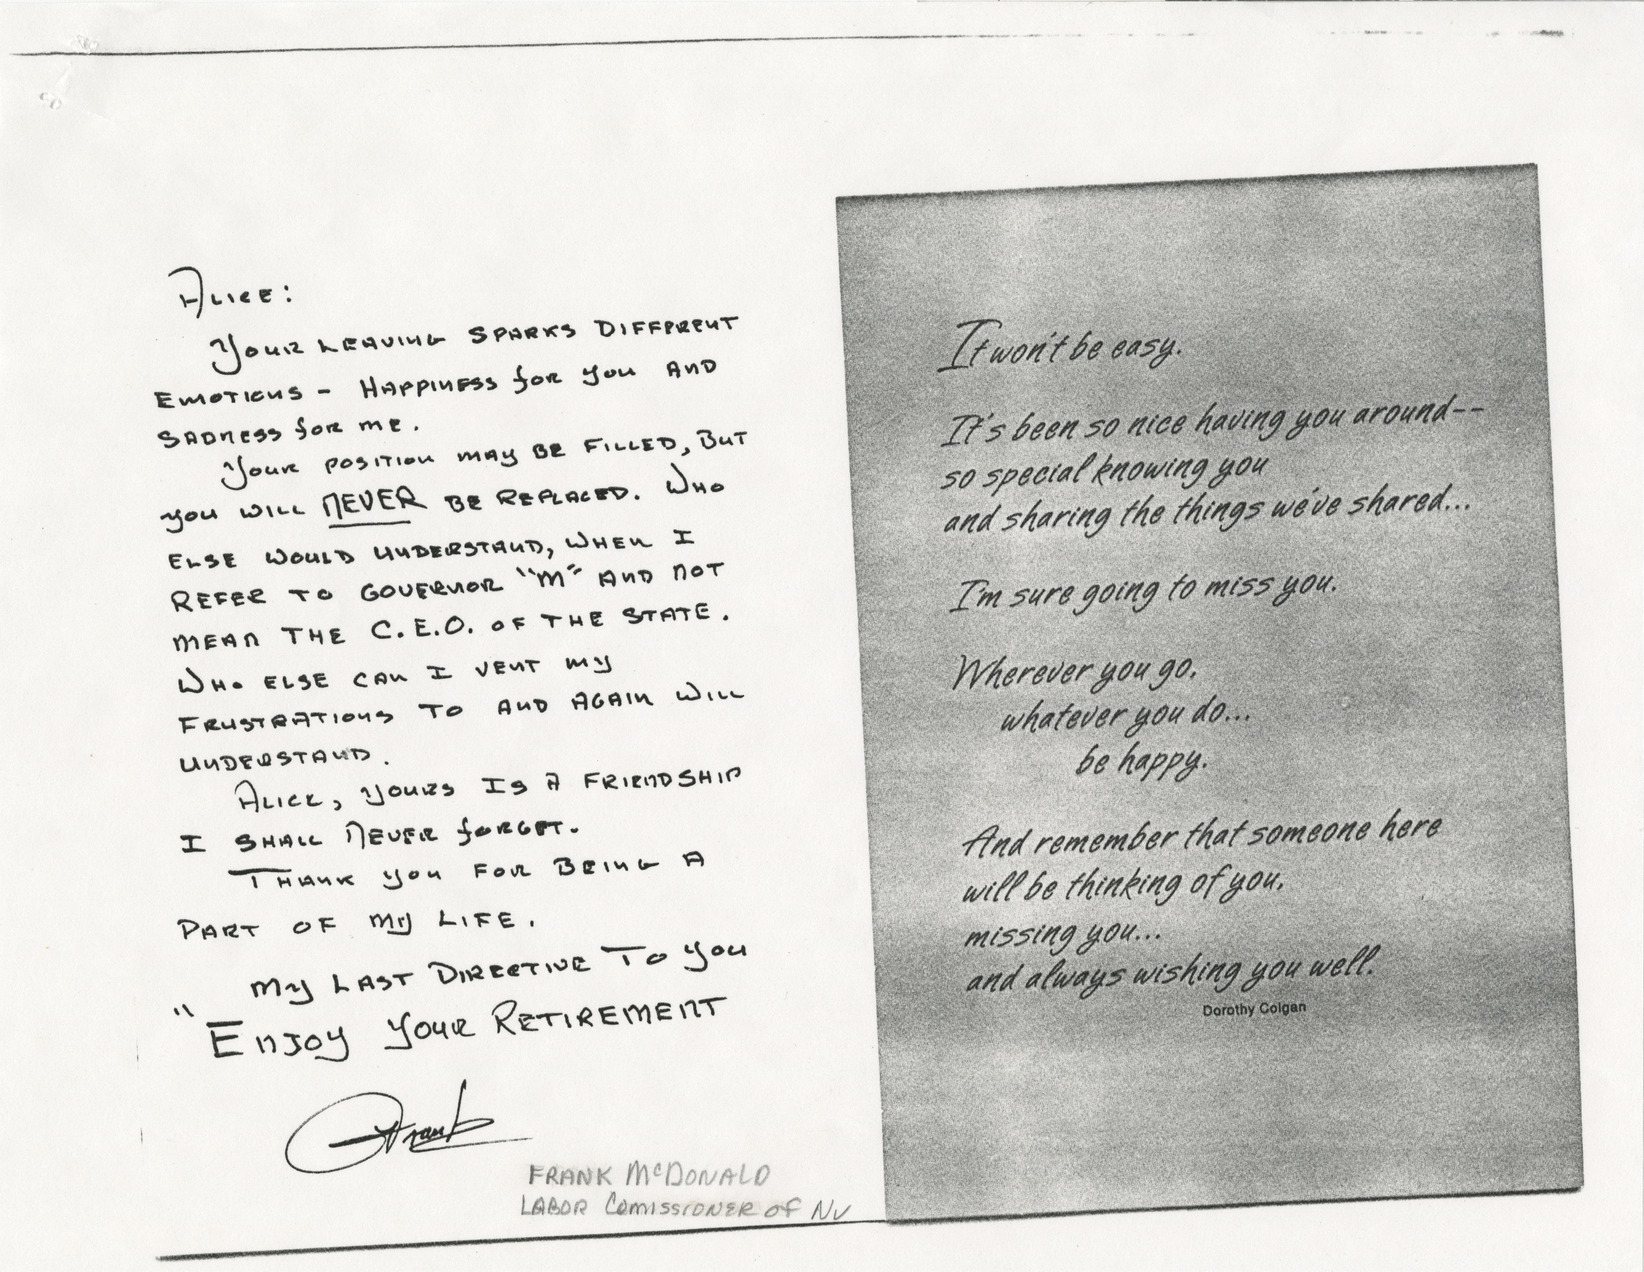 Alice:
Your leaving sparks different
emotions - Happiness for you and
sadness for me.
Your position may be filled, but
you will NEVER be replaced. Who
else would understand, when I
refer to Governor "M" and not
mean the C.E.O. of the State.
Who else can I vent my
frustrations to and again will
understand.
Alice, yours is a friendship
I shall never forget.
Thank you for being a
part of my life.
My last directive to you
"Enjoy your Retirement
Frank
FRANK McDONALD
LABOR COMISSIONER of NV
It won't be easy.
It's been so nice having you around--
so special knowing you
and sharing the things we've shared...
I'm sure going to miss you.
Wherever you go,
whatever you do...
be happy.
And remember that someone here
will be thinking of you,
missing you...
and always wishing you well.
Dorothy Colgan